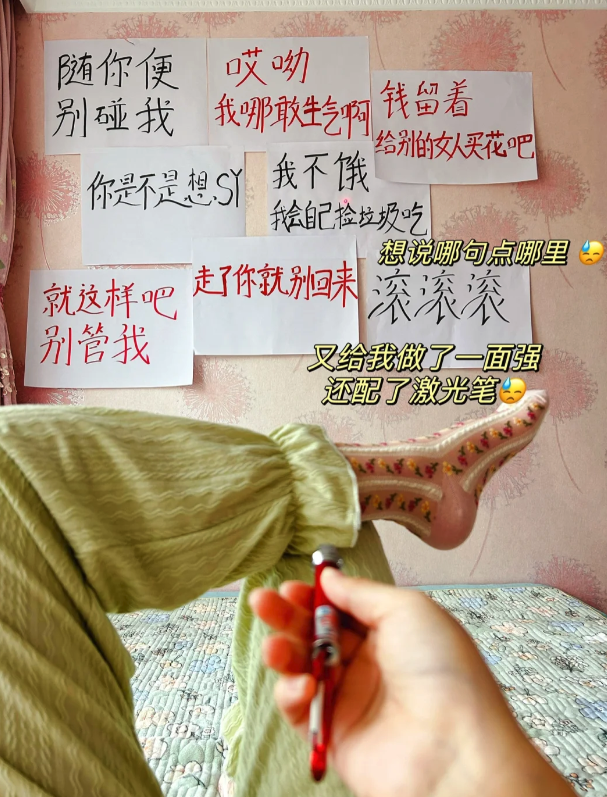 随你便
别碰我
哎呦
我哪敢生气啊
钱留着
给别的女人买花吧
你是不是想.SY
我不饿
我会自己捡垃圾吃
想说哪句点哪里 😓
就这样吧
别管我
走了你就别回来
滚滚滚
又给我做了一面强
还配了激光笔😓